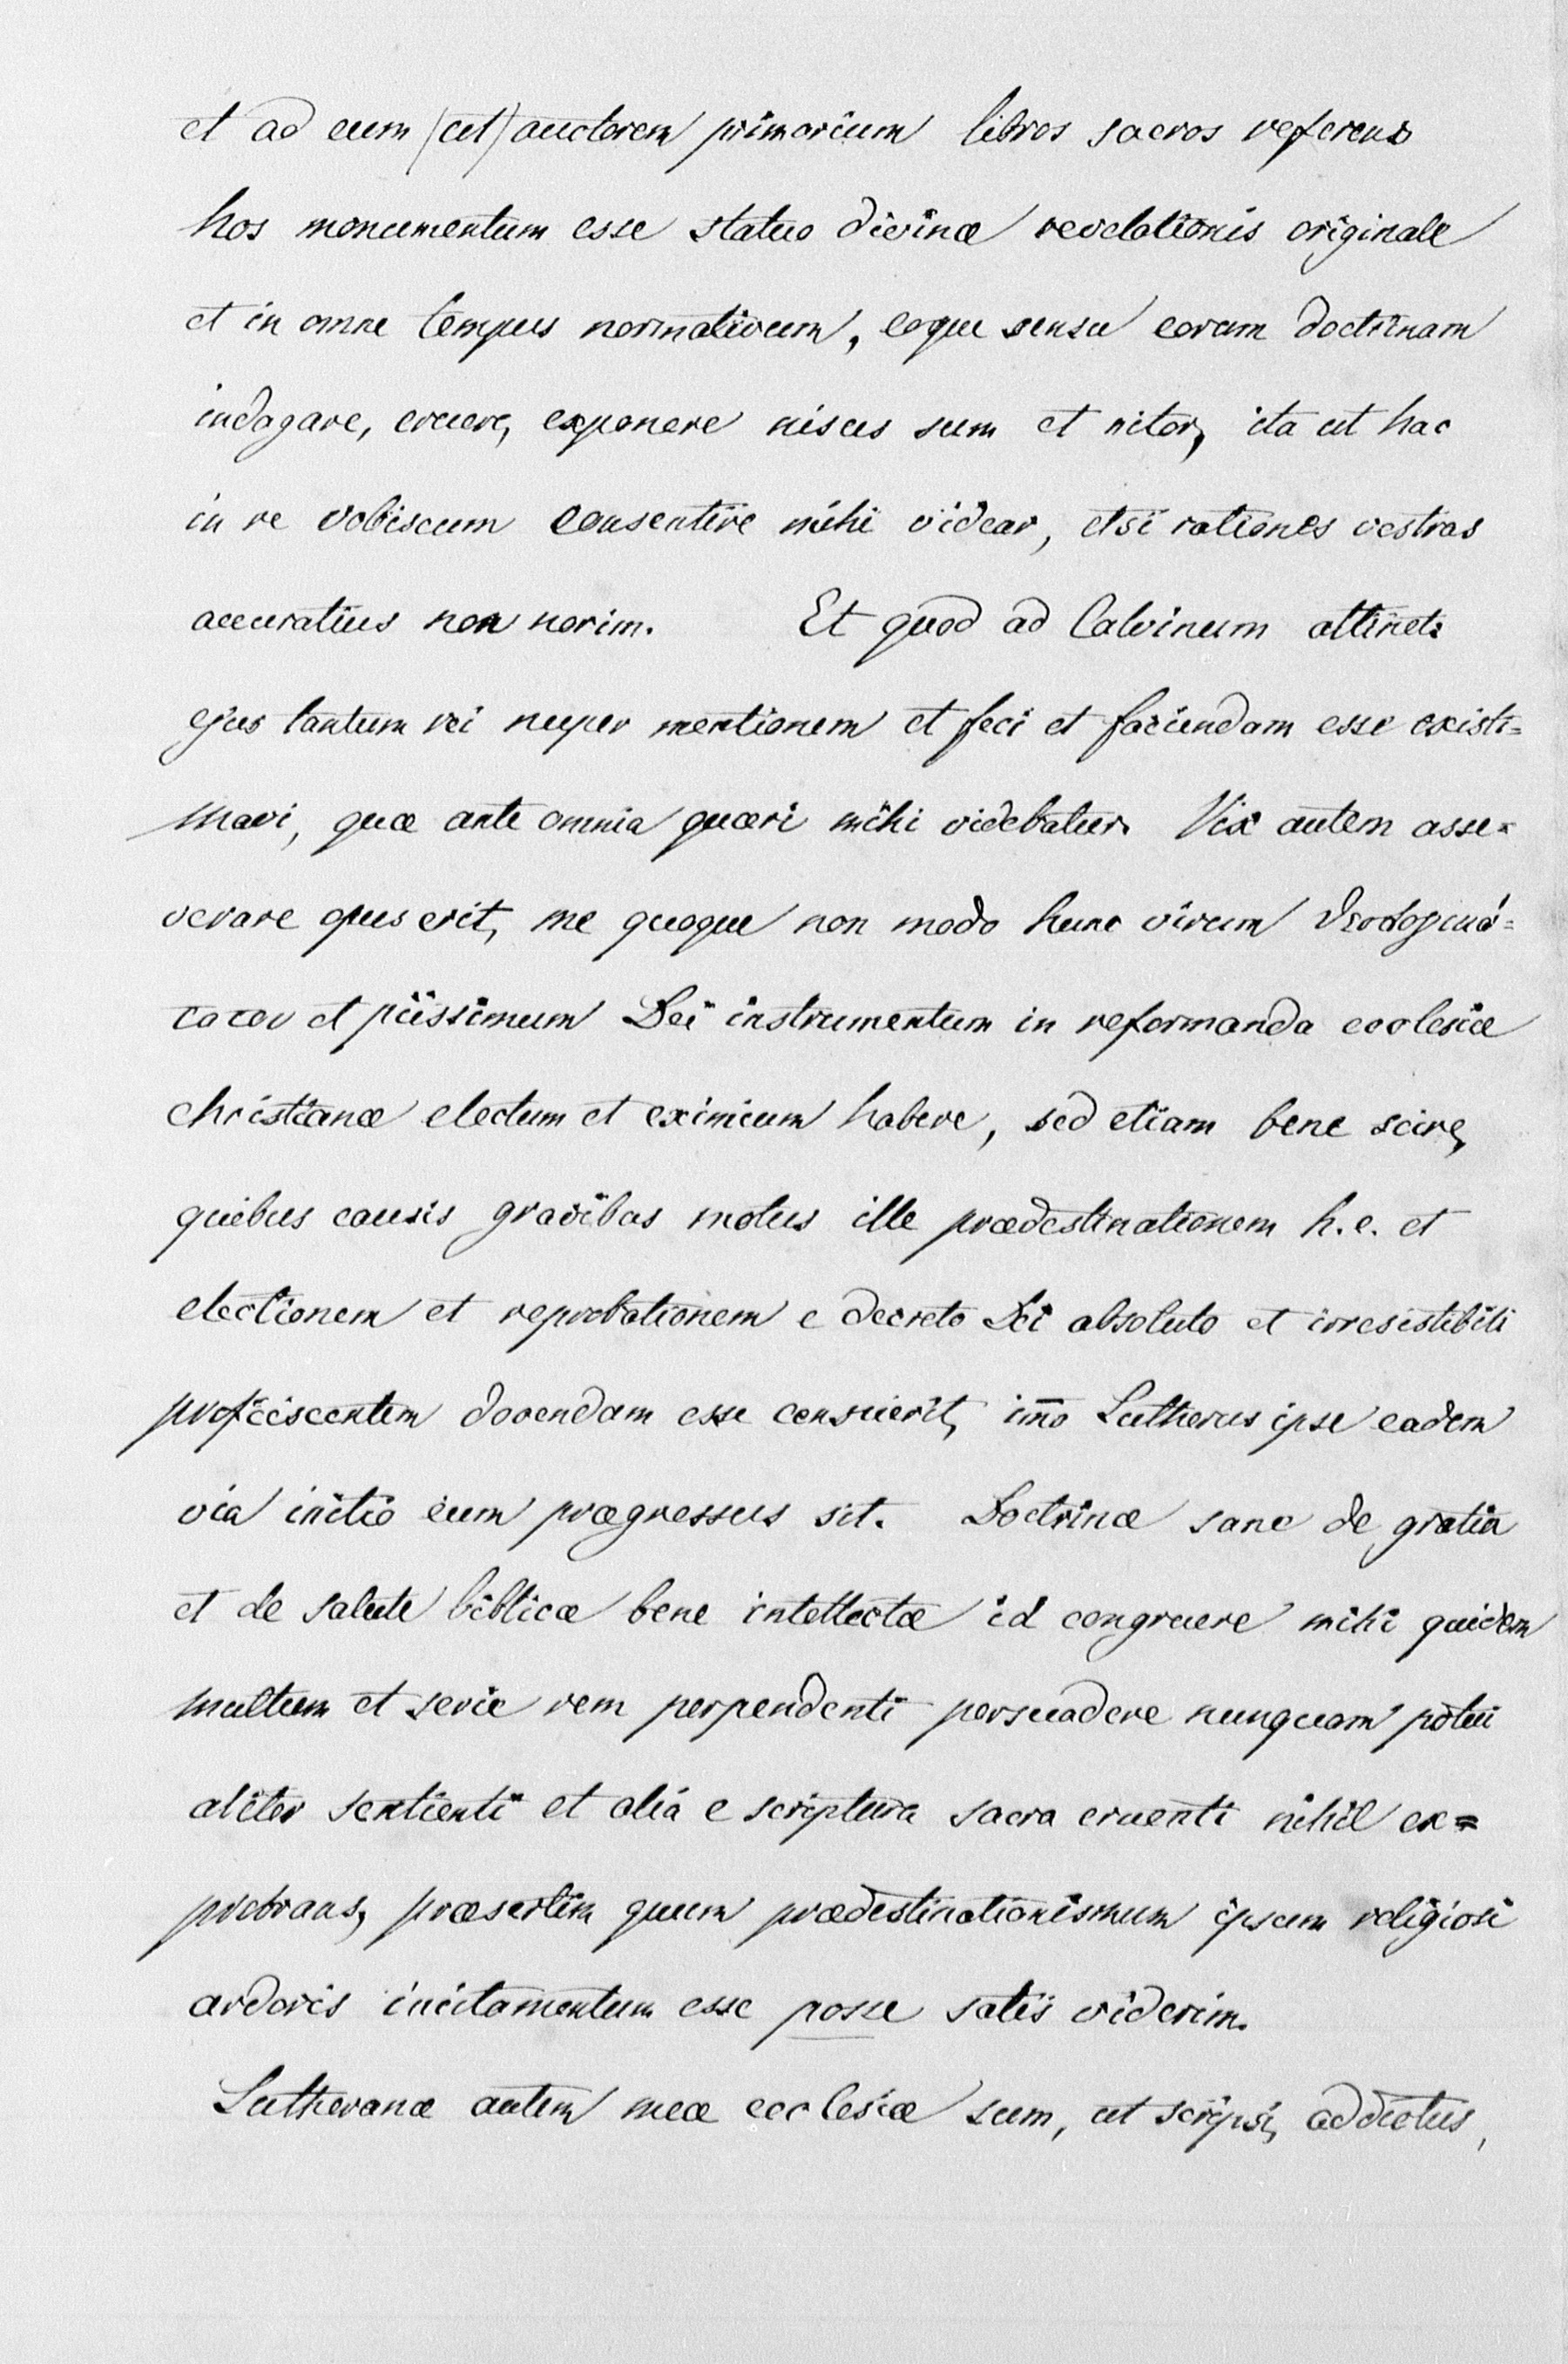 et ad eum (ut) auctorem primarium libros sacros referens
hos monumentum esse statuo divinæ revelationis originale
et in omne tempus normativum, eoque sensu eorum doctrinam
indagare, eruere, exponere nisus sum et nitor, ita ut hac
in re vobiscum consentire mihi videar, etsi rationes vestras
accuratius non norim. Et quod ad Calvinum attinet:
ejus tantum rei nuper mentionem et feci et faciendam esse existi=
mavi, quæ ante omnia quæri mihi videbatur. Vix autem asse=
verare opus erit, me quoque non modo hunc virum
et piissimum Dei instrumentum in reformanda ecclesia
christiana electum et eximium habere, sed etiam bene scire,
quibus causis gravibus motus ille prædestinationem h. e. et
electionem et reprobationem e decreto Dei absoluto et irresistibili
proficiscentem docendam esse censuerit, im̅o Lutherus ipse eadem
via initio eum prægressus sit. Doctrinæ sane de gratia
et de salute biblicæ bene intellectæ id congruere mihi quidem
multum et serie rem perpendenti persuadere nunquam potui
aliter sentienti et alia e scriptura sacra eruenti nihil ex=
probrans, præsertim quum prædestinationismum ipsum religiosi
ardoris incitamentum esse posse satis viderim.
Lutheranæ autem meæ ecclesiæ sum, ut scripsi, addictus,